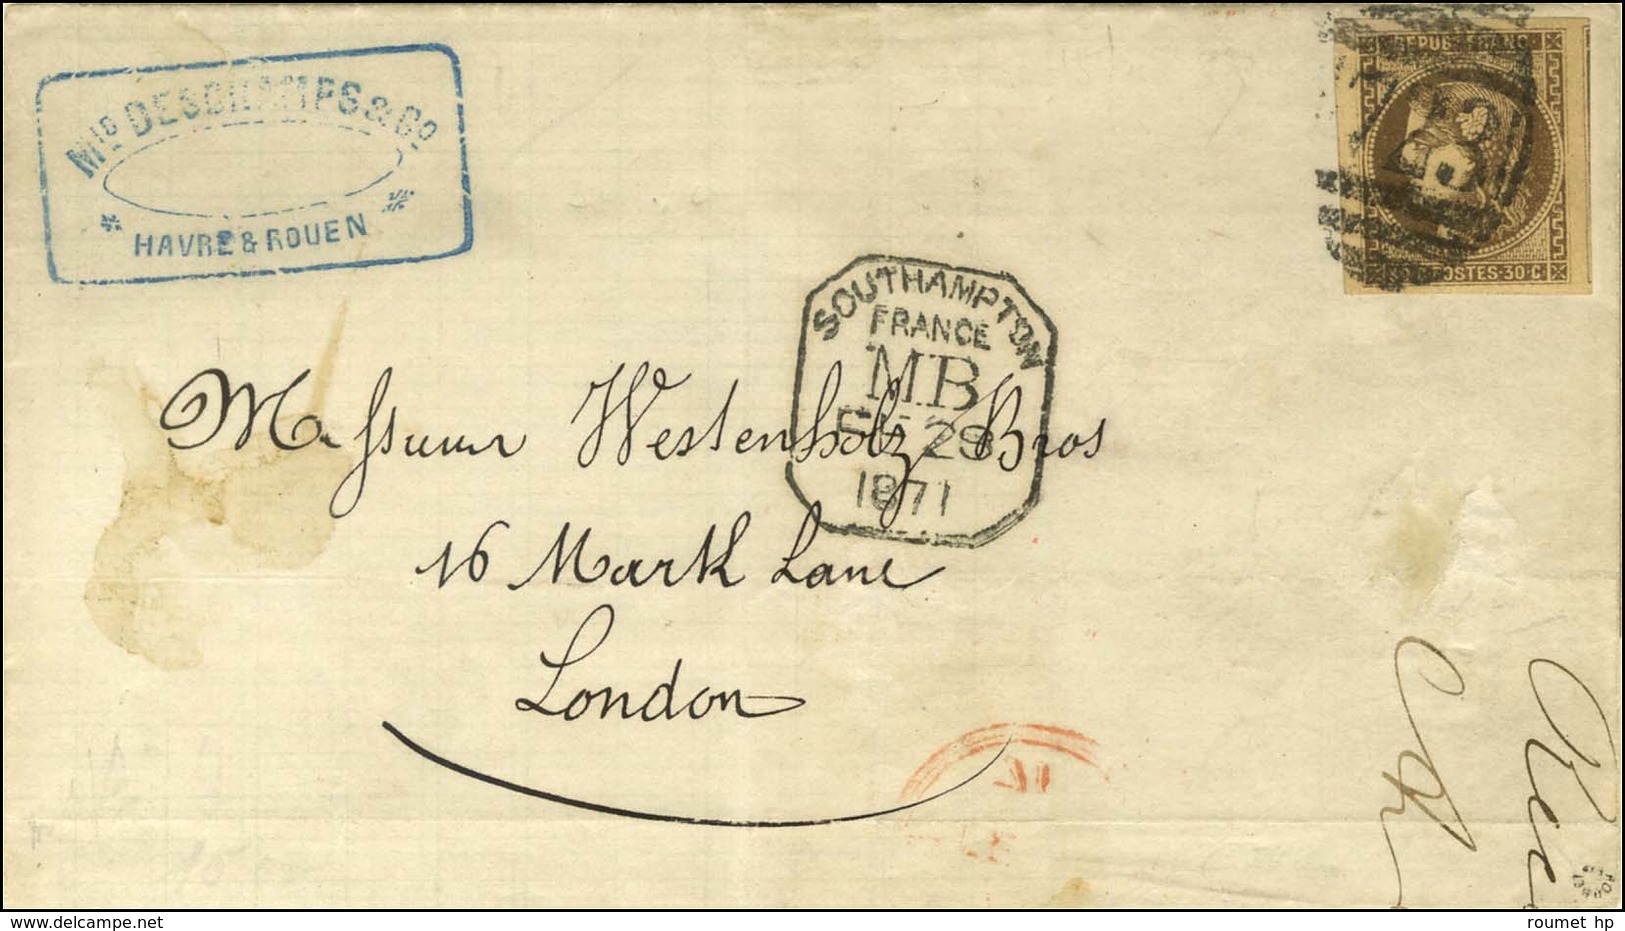 Mis DESCHAMPS & Co
HAVRE & ROUEN
REPUB. FRANC.
POSTES · 30 · C.
SOUTHAMPTON
FRANCE
M.B
28
1871
Messieurs Westenholz Bros
16 Mark Lane
London
www.delcampe.net
roumet hp